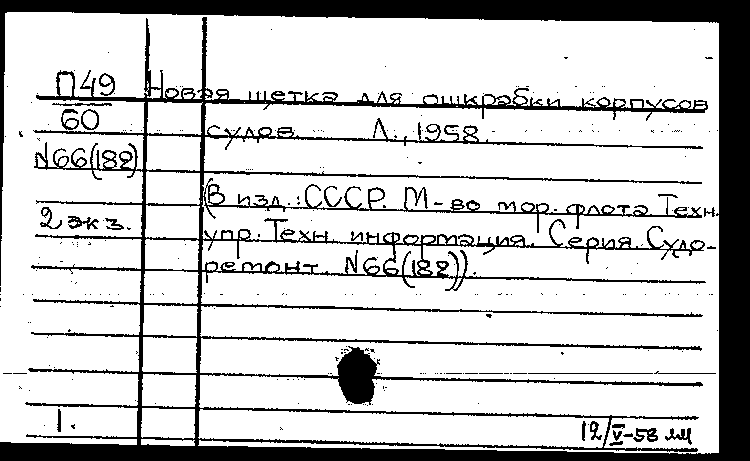 П49 Новая щетка для ошкрабки корпусов
60 судов. Л., 1958.
N66(182)
(В изд.: СССР. М-во мор. флота. Техн.
2 экз. упр. Техн. информация. Серия. Судо-
ремонт. N66(182)).
1. 12/V-58 мм